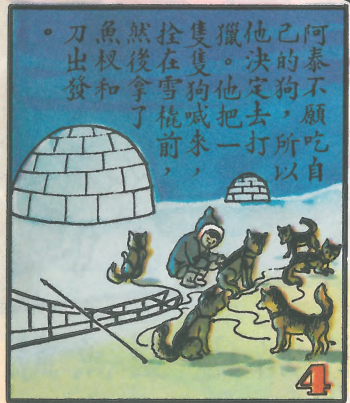 阿泰不願吃自
己的狗，所以
他決定去打
獵。他把一
隻隻狗喊來，
拴在雪橇前，
然後拿了
魚杈和
刀出發
。
4